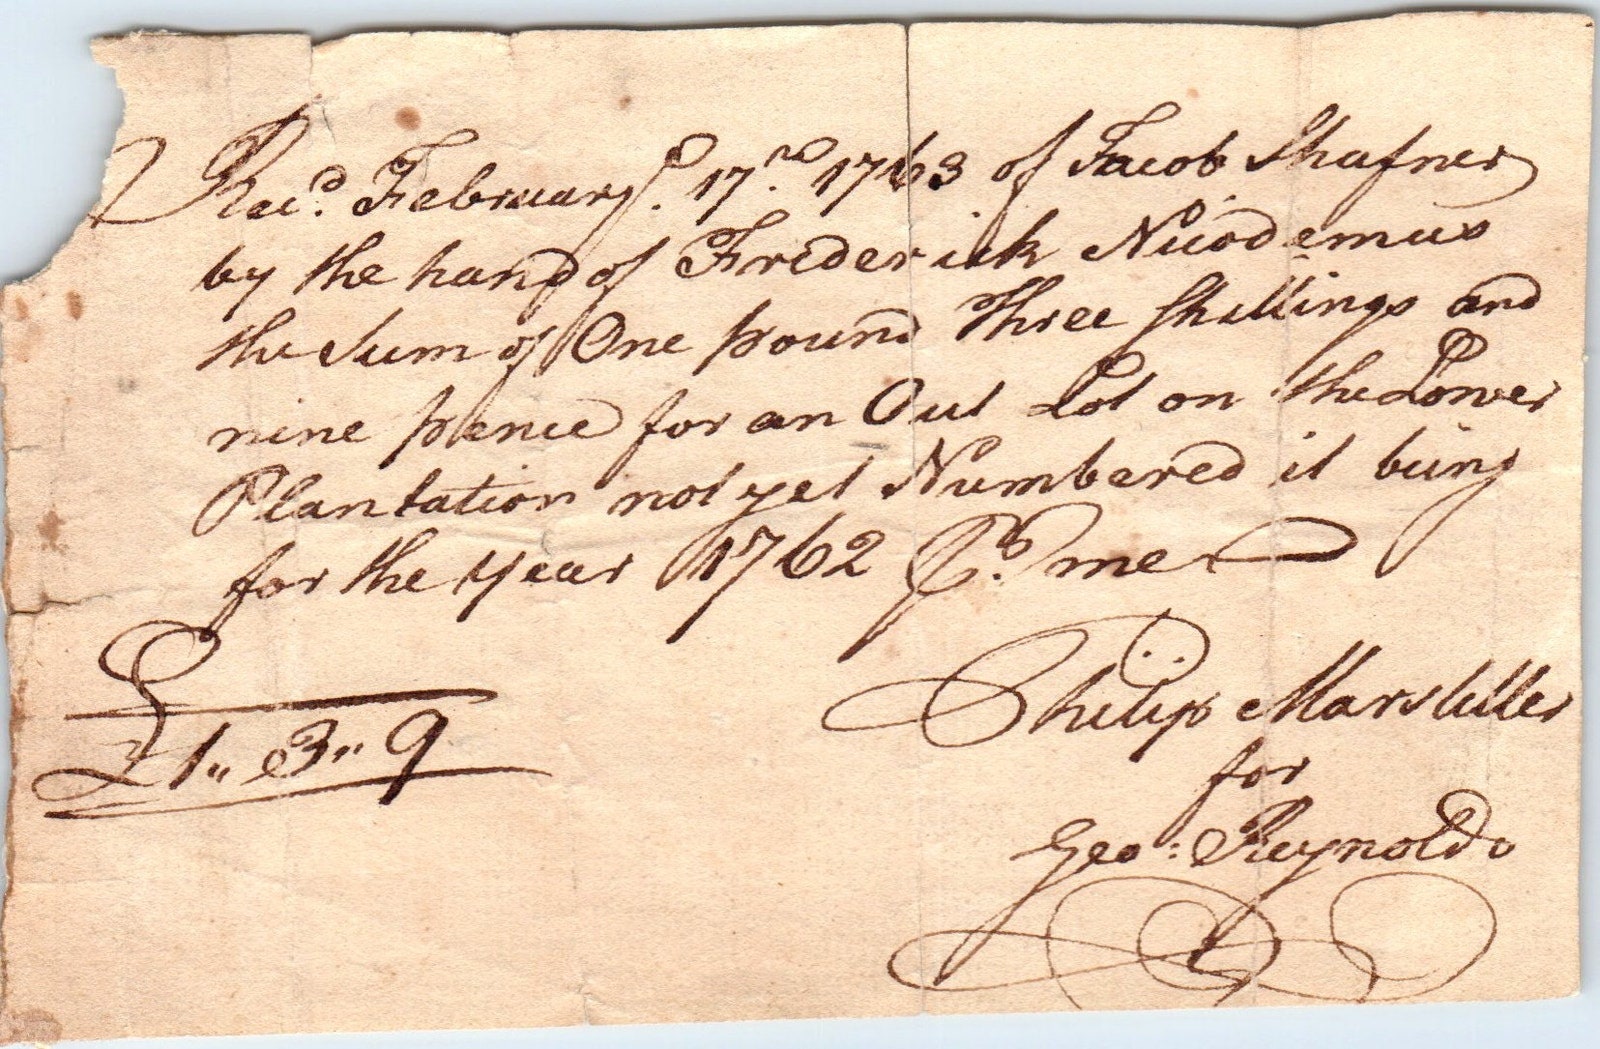 Rec.d February. 17.th 1763 of Jacob Shafner
by the hand of Frederick Nicodemus
the Sum of One pound Three Shillings and
nine pence for an Out Lot on the Lower
Plantation not yet Numbered it being
for the year 1762 ₱.r me
£1,, 3,, 9
Philip Marsteller
for
Geo: Reynolds